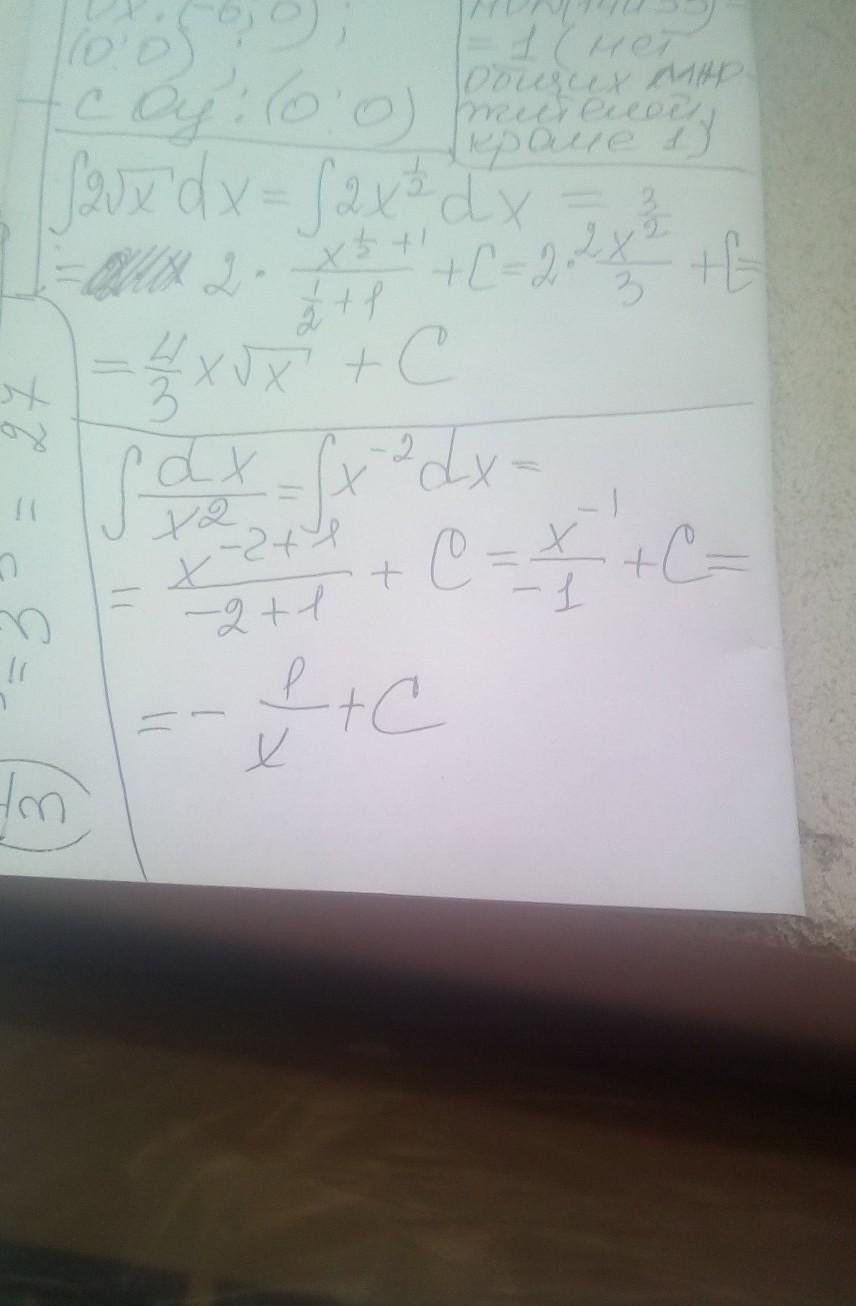 (0;0);
с Oy: (0;0)
= 1 (нет
общих мно-
жителей,
кроме 1)
∫2√x dx = ∫2x^(1/2) dx =
= 2 · x^(1/2 + 1) / (1/2 + 1) + C = 2 · 2x^(3/2) / 3 + C =
= 4/3 x√x + C
∫ dx / x² = ∫ x^(-2) dx =
= x^(-2+1) / (-2+1) + C = x^(-1) / -1 + C =
= - 1/x + C
= 3 = 27